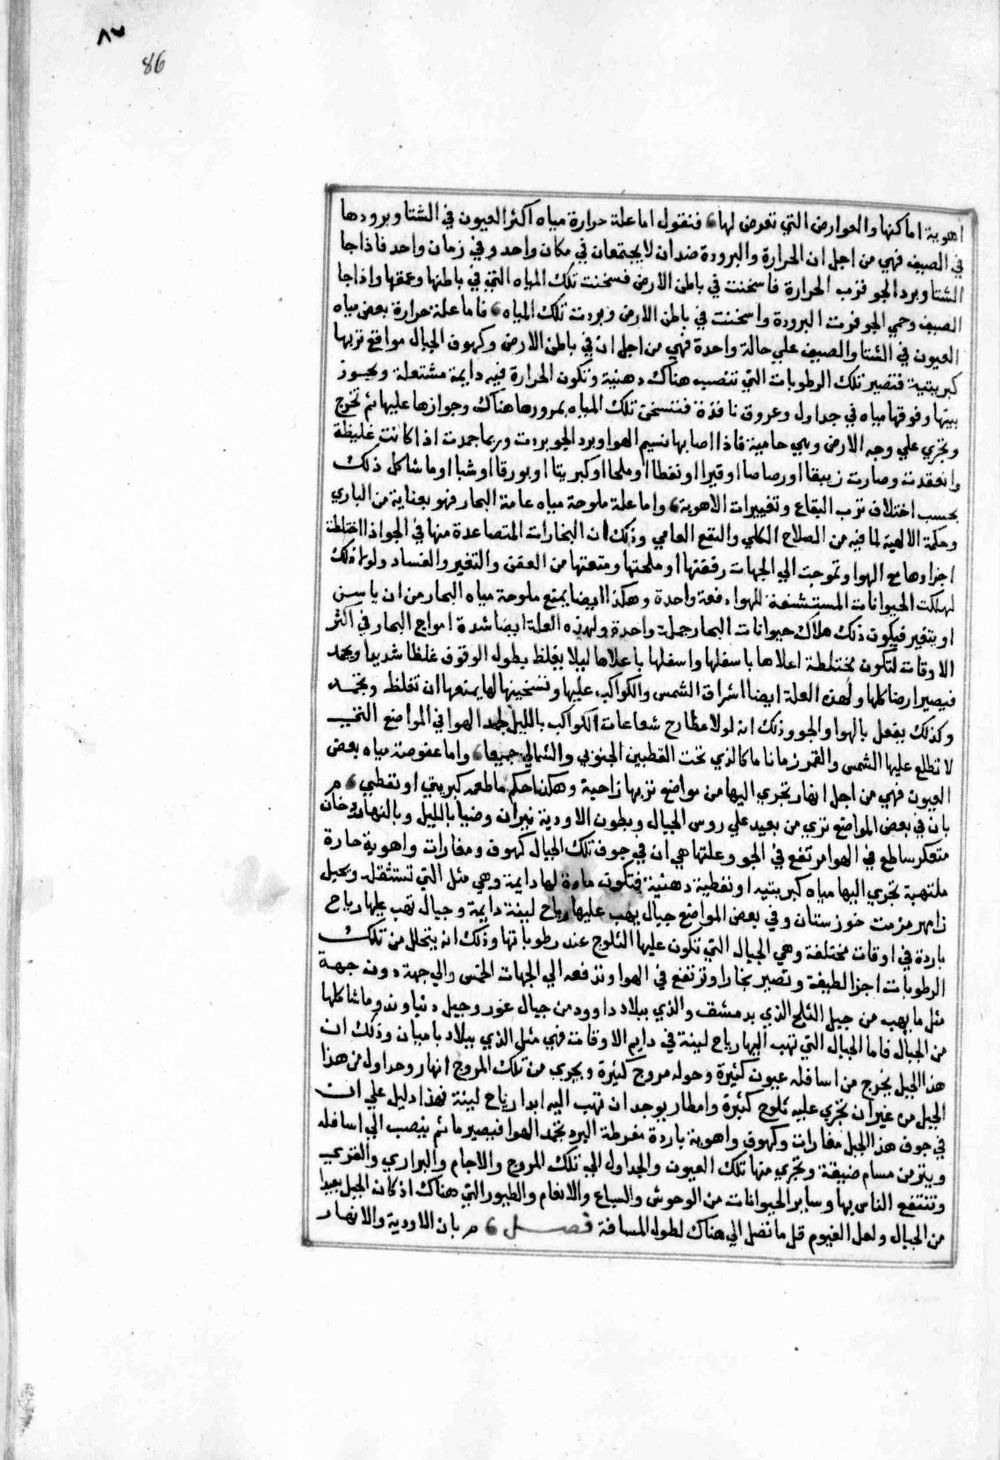 ٨٧
86
اهوية اماكنها والعوارض التي تعرض لها فنقول اما علة حرارة مياه اكثر العيون في الشتا وبرودها
في الصيف فهي من اجل ان الحرارة والبرودة ضدان لا يجتمعان في مكان واحد وفي زمان واحد فاذا جا
الشتا وبرد الجو فرت الحرارة فاسخنت في باطن الارض فسخنت تلك المياه التي في باطنها وعمقها واذا جا
الصيف وحمي الجو فرت البرودة واسخنت في باطن الارض وبردت تلك المياه فاما علة حرارة بعض مياه
العيون في الشتا والصيف علي حالة واحدة فهي من اجل ان في باطن الارض وكهوف الجبال مواقع تربها
كبريتية فتصير تلك الرطوبات التي تنصب هناك دهنية وتكون الحرارة فيه دايمة مشتعلة ويجوز
بينها وفوقها مياه في جداول وعروق نافذة فتسخن تلك المياه بمرورها هناك وجوازها عليها ثم تخرج
وتجري علي وجه الارض وهي حامية فاذا اصابها نسيم الهوا وبرد الجو بردت وربما جمدت اذا كانت غليظة
وانعقدت وصارت زيبقا او رصاصا او قيرا او نفطا او ملحا او كبريتا او بورقا او شبا او ما شاكل ذلك
بحسب اختلاف ترب البقاع وتغييرات الاهوية واما علة ملوحة مياه عامة البحار فهو بعناية من الباري
وحكمة الالهية لما فيه من الصلاح الكلي والنفع العامي وذلك ان البخارات المتصاعدة منها في الجو اذا اختلطة
اجزاوها مع الهوا وتموجت الي الجهات رفقتها او ملحتها ومنعتها من العفن والتغير والفساد ولولا ذلك
لهلكت الحيوانات المستنشقة للهوا دفعة واحدة وهكذا ايضا يمنع ملوحة مياه البحار من ان ياسن
او يتغير فيكون ذلك هلاك حيوانات البحار جملة واحدة ولهذه العلة ايضا شدة امواج البحار في اكثر
الاوقات لتكون مختلطة اعلاها باسفلها واسفلها باعلاها ليلا يغلظ بطول الوقوف غلظا شديدا ويجمد
فيصير ارضا كلها ولهذه العلة ايضا اشراق الشمس والكواكب عليها وتسخينها لها يمنعها ان تغلظ وتجمد
وكذلك يفعل بالهوا والجو وذلك انه لولا مطارح شعاعات الكواكب بالليل لجمد الهوا في المواضع التي
لا تطلع عليها الشمس والقمر زمانا ما كالذي تحت القطبين الجنوبي والشمالي جميعا واما عفوصة مياه بعض
العيون فهي من اجل انها تجري اليها من مواضع تربها زاجية وهكذا حكم ما طعمه كبريتي او نفطي
بان في بعض المواضع تري من بعيد علي روس الجبال وبطون الاودية نيران وضيا بالليل وبالنهار دخان
متعكر ساطع في الهوا مرتفع في الجو وعلتها هي ان في جوف تلك الجبال كهوف ومغارات واهوية حارة
ملتهبة تجري اليها مياه كبريتيه او نفطية دهنية فتكون مادة لها دايمة وهي مثل التي تستثقل وبجبل
رامهرمز من خوزستان وفي بعض المواضع جبال يهب عليها رياح لينة دايمة وجبال تهب عليها رياح
باردة في اوقات مختلفة وهي الجبال التي تكون عليها الثلوج عند رطوباتها وذلك انه يتحلل من تلك
الرطوبات اجزا لطيفة وتصير بخارا وترتفع في الهوا وتدفعه الي الجهات الخمس والي جهة دون جهة
مثل ما يهب من جبل الثلج الذي بدمشق والذي ببلاد داوود من جبال غور وجبل دنياوند وما شاكلها
من الجبال فاما الجبال التي تهب اليها رياح لينة في دايم الاوقات فهي مثل الذي ببلاد باميان وذلك ان
هذا الجبل يخرج من اسافله عيون كثيرة وحوله مروج كثيرة ويجري من تلك المروج انهار وجداول من هذا
الجبل من غير ان تجري عليه ثلوج كثيرة وامطار يوجد ان تهب اليه ابدا رياح لينة فهذا دليل علي ان
في جوف هذا الجبل مغارات وكهوف واهوية باردة مفرطة البرد تجمد الهوا فيصير ما ثم ينصب الي اسافله
وينز من مسام ضيقة وتجري منها تلك العيون والجداول الي تلك المروج والاجام والبراري والقري
وتنتفع الناس بها وساير الحيوانات من الوحوش والسباع والانعام والطيور التي هناك اذ كان الجبل بعيدا
من الجبال ولعل الغيوم قل ما تصل الي هناك لطول المسافة فصل بان الاودية والانهار